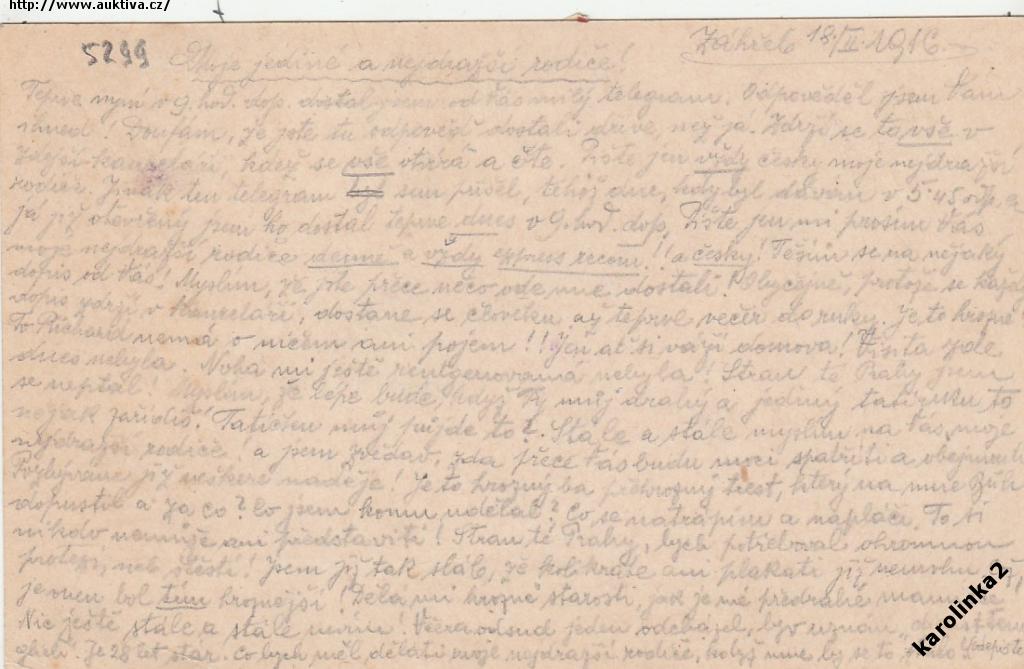 http://www.auktiva.cz/
5299
Záhřeb 18/II. 1916.
Moje jediné a nejdražší rodiče!
Teprve nyní v 9. hod. dop. dostal jsem od Vás milý telegram. Odpověděl jsem Vám
ihned! Doufám, že jste tu odpověď dostali dříve, než já. Zdrží se to vše v
zdejší kanceláři kdež se vše otvírá a čte. Pište jen vždy česky moje nejdražší
rodiče. Jinak ten telegram sem přišel, téhož dne, kdy byl dáván v 5:45 odp. a
já již otevřený jsem ho dostal teprve dnes v 9. hod. dop. Pište jen mi prosím Vás
moje nejdražší rodiče denně a vždy express recom!! a česky! Těším se na nějaký
dopis od Vás! Myslím, že jste přece něco ode mne dostali! Obyčejně, protože se každý
dopis zdrží v kanceláři, dostane se člověku až teprve večer do ruky. Je to hrozné!
To Richard nemá o ničem ani pojem!! Jen ať si váží domova! Visita zde
dnes nebyla. Noha mi ještě rentgenovaná nebyla! Stran té Prahy jsem
se neptal! Myslím, že lépe bude, když Ty můj drahý a jediný tatínku to
nějak zařídíš! Tatíčku můj půjde to? Stále a stále myslím na Vás, moje
nejdražší rodiče! a jsem zvědav, zda přece Vás budu moci spatřiti a obejmouti
již veškeré naděje! Je to hrozný ba přehrozný trest, který na mne Bůh
dopustil a za co? Co jsem komu udělal? Co se natrápím a napláči. To si
nikdo nemůže ani představiti! Stran té Prahy, bych potřeboval ohromnou
protekci, neb štěstí! Jsem již tak sláb, že kolikráte ani plakati již nemohu
je onen bol tím hroznější! Dělá mi hrozné starosti, jak je mé předrahé
Nic ještě stále a stále nevím! Včera odsud jeden odcházel, byv uznán
Je 28 let stár. Co bych měl dělati moje nejdražší rodiče, když mne by se to
karolinka2